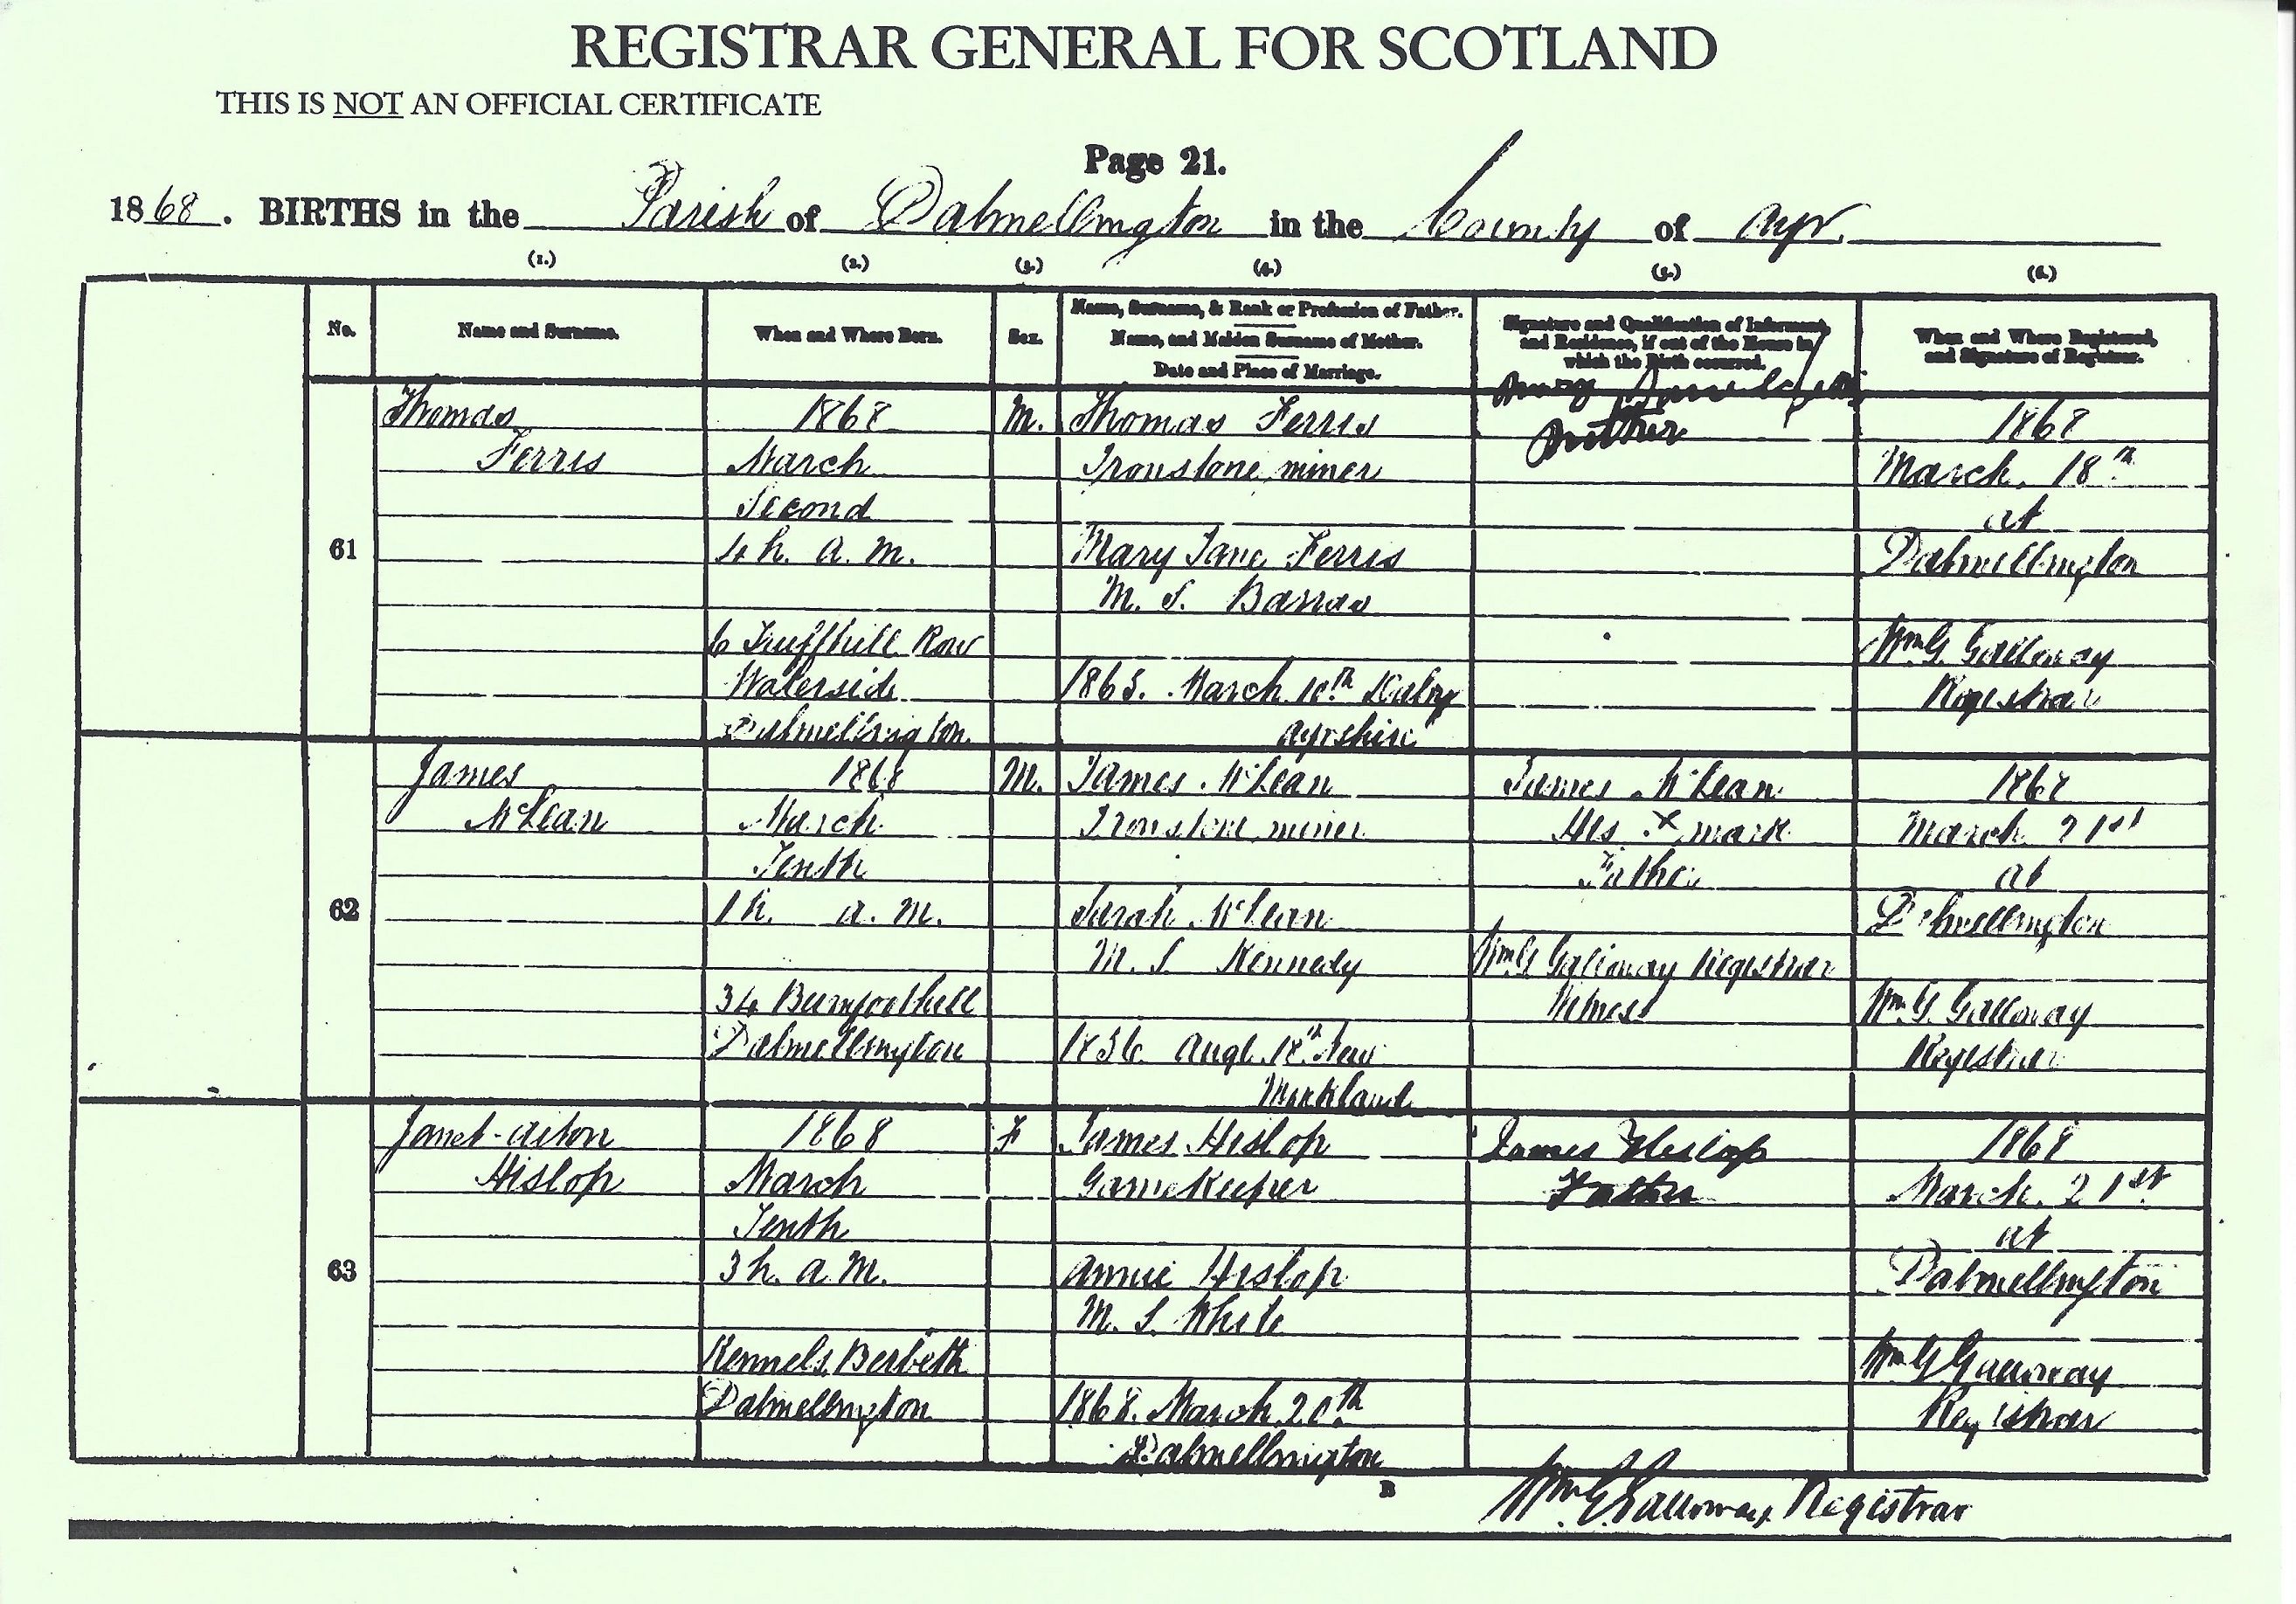 REGISTRAR GENERAL FOR SCOTLAND
THIS IS NOT AN OFFICIAL CERTIFICATE
Page 21.
1868. BIRTHS in the Parish of Dalmellington in the County of Ayr.
(1.) (2.) (3.) (4.) (5.) (6.)
No.
Name and Surname.
When and Where Born.
Sex.
Name, Surname, & Rank or Profession of Father.
Name, and Maiden Surname of Mother.
Date and Place of Marriage.
Signature and Qualification of Informant,
and Residence, if out of the House in
which the Birth occurred.
When and Where Registered,
and Signature of Registrar.
61
Thomas
Ferris
1868
March
Second
4 h. a. m.
6 Truffhill Row
Waterside
Dalmellington
M.
Thomas Ferris
Ironstone miner
Mary Jane Ferris
M. S. Barras
1865. March 10th
Ayrshire
Mother
1868
March 18th
at
Dalmellington
Wm G. Galloway
Registrar
62
James
McLean
1868
March
Tenth
1 h. a. m.
34 Burnfoothill
Dalmellington
M.
James McLean
Ironstone miner
Sarah McLean
M. S. Kennedy
1856 Augt. 18th New
Mirkland
James McLean
His X mark
Father
Wm G Galloway Registrar
Witness
1868
March 21st
at
Dalmellington
Wm G. Galloway
Registrar
63
Janet-Aiton
Hislop
1868
March
Tenth
3 h. a. m.
Kennels, Berbeth
Dalmellington
F
James Hislop
Gamekeeper
Annie Hislop
M. S. White
1868. March 20th
Dalmellington
James Hislop
Father
1868
March. 21st
at
Dalmellington
Wm G Galloway
Registrar
B
Wm G Galloway Registrar